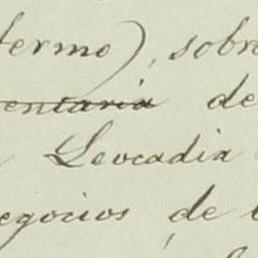 termo), sobre
entaria de
Leocadia
egocios de